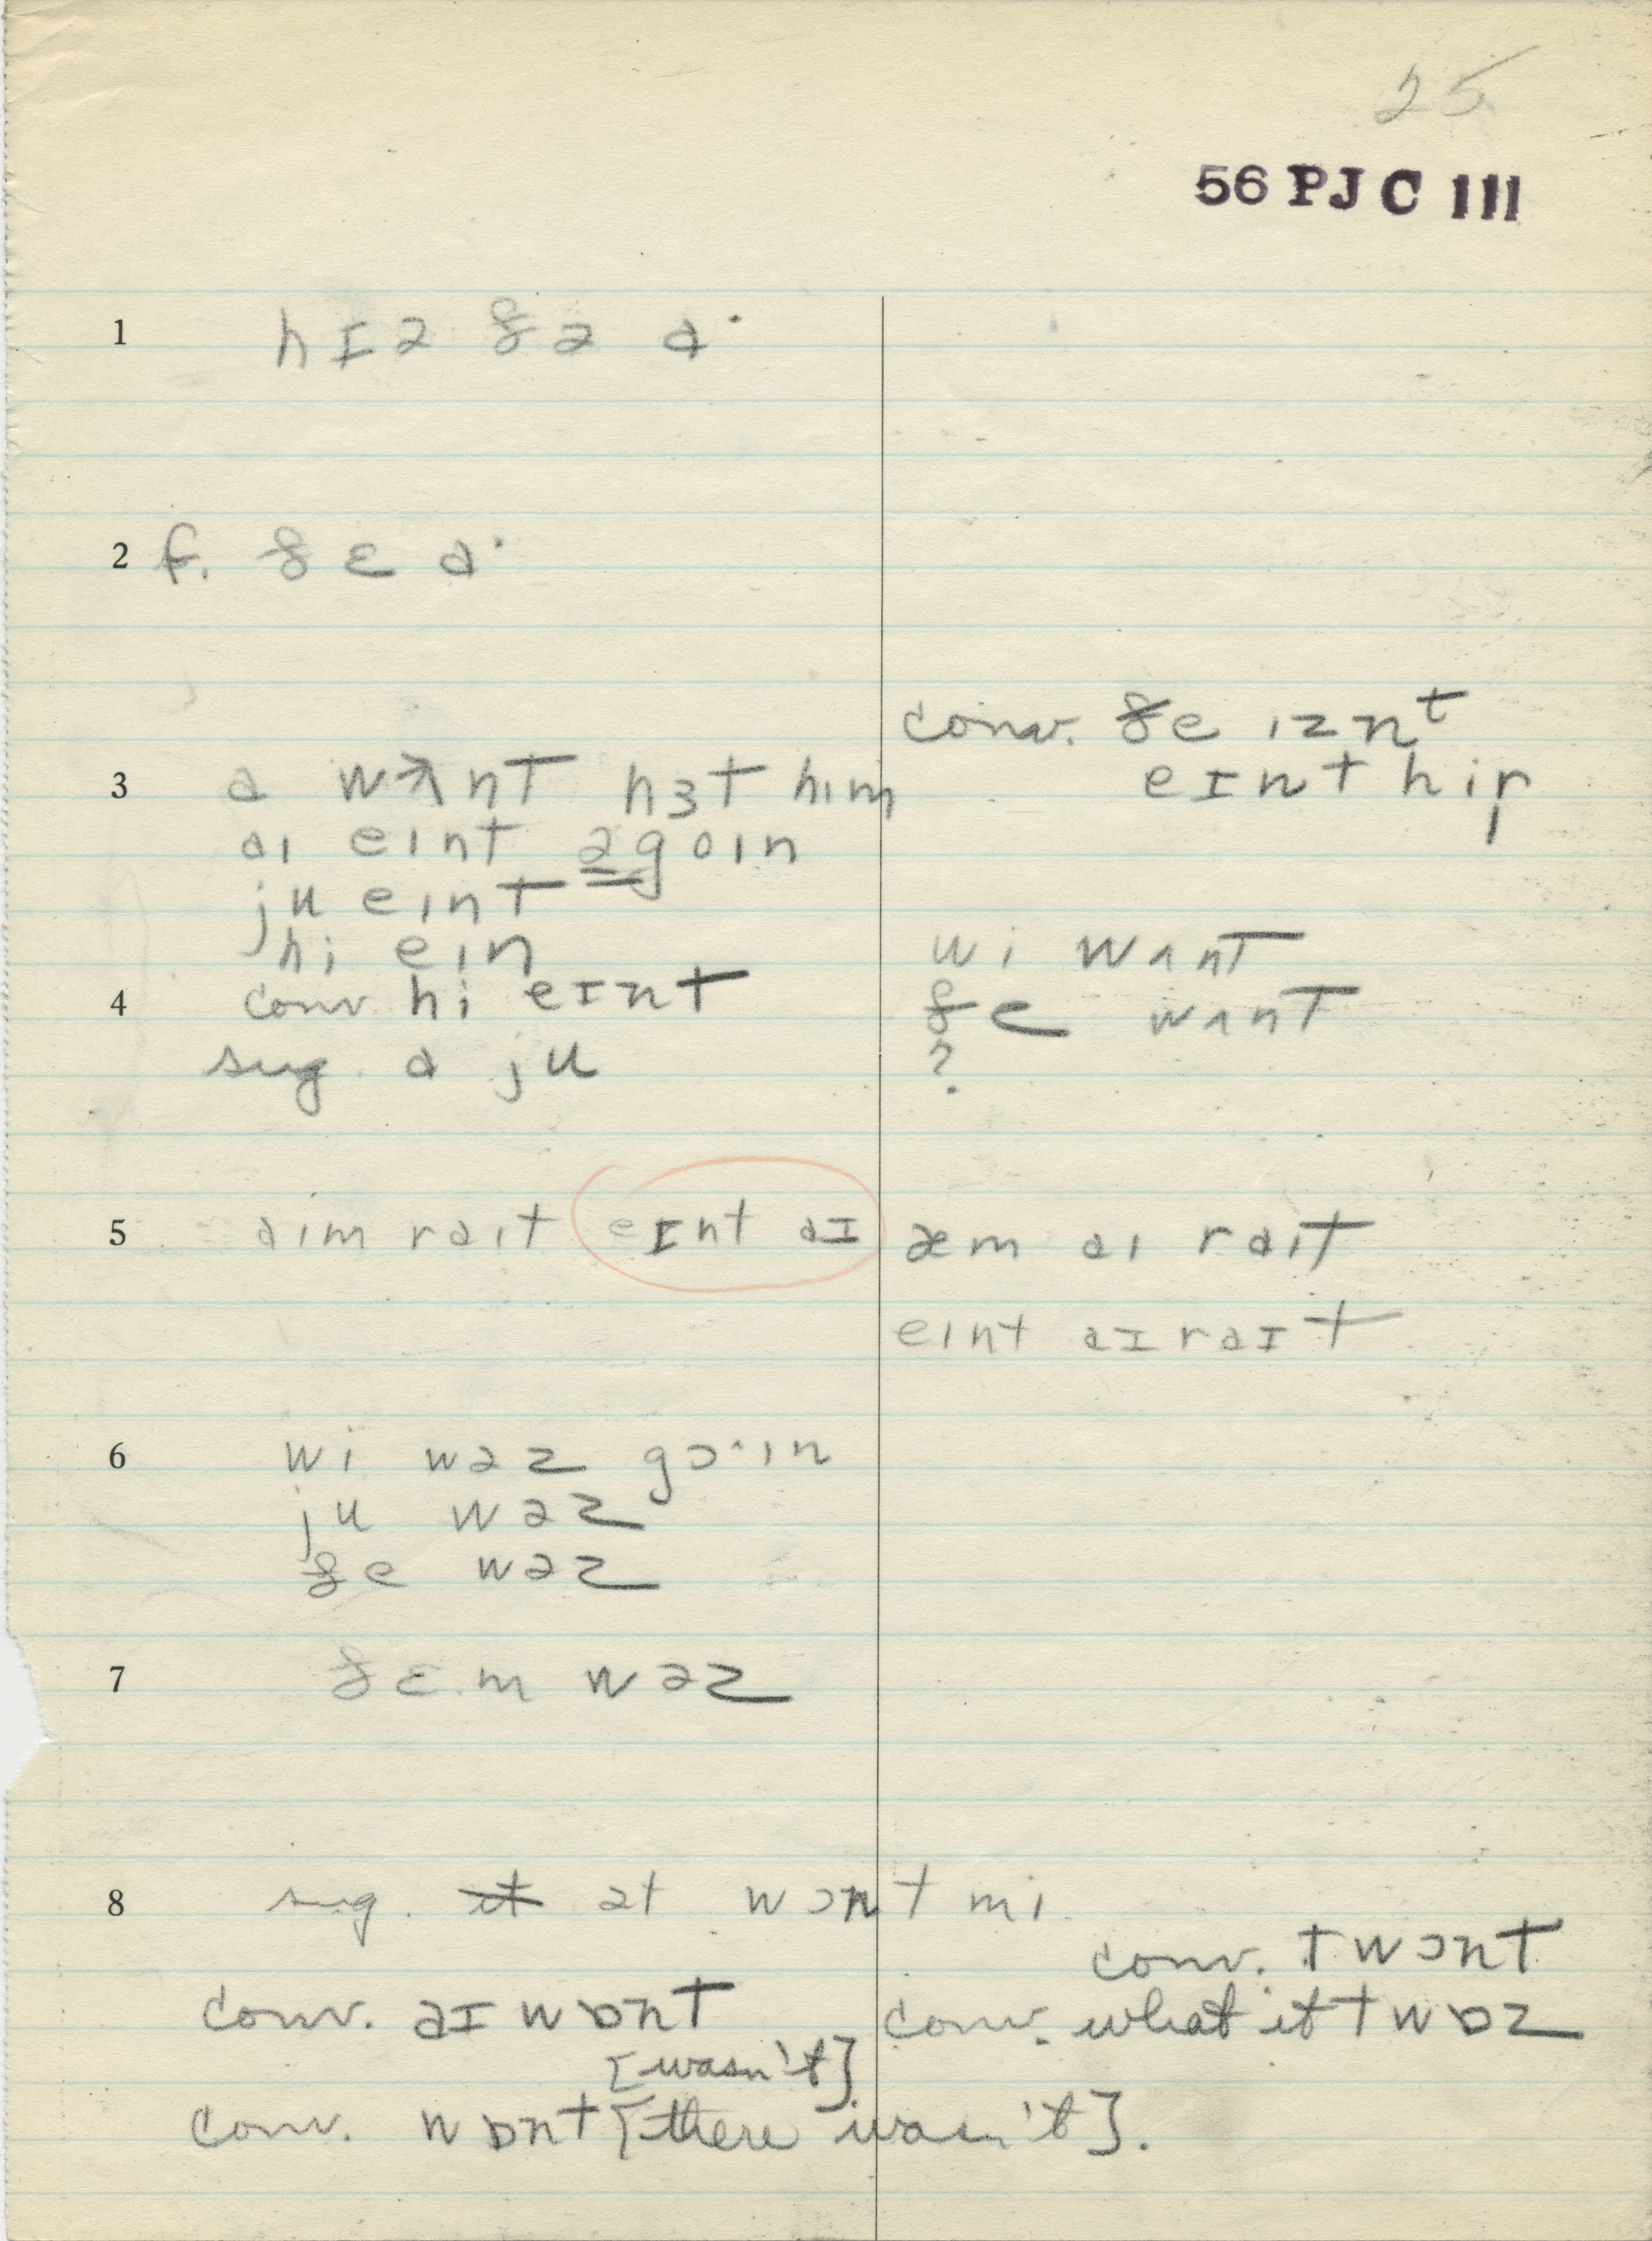 25
56 PJ C III
1 hɪə ðə a·
2 f. ðɛ a·
3 a wʌnt hɜt him
aɪ eɪnt əgoɪn
ju eɪnt
hi eɪn
4 conv. hi eɪnt
sug. a ju
conv. ðe ɪznt
eɪnt hir
wi wʌnt
ðe wʌnt
?
5 aɪm raɪt eɪnt aɪ æm aɪ raɪt
eɪnt aɪ raɪt
6 wi wəz gɔ·ɪn
ju wəz
ðe wəz
7 ðɛm wəz
8 sug. it ət wɔnt mi
conv. twɔnt
conv. aɪ wɒnt conv. what it twɒz
[wasn't]
conv. wɒnt [there wasn't].